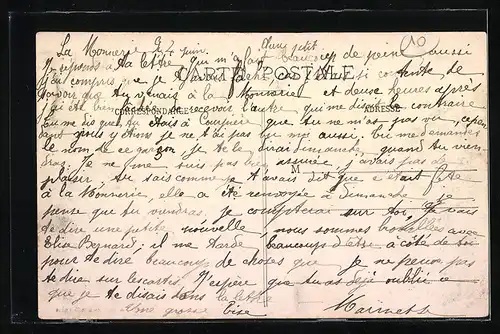 La Monnerie 24 juin
Chère petite
Je réponds à ta lettre qui m'a fait beaucoup de peine aussi
j'ai compris que je t'avais
CARTE POSTALE
si contente de
savoir que tu venais à la Monnerie et deux heures après
j'ai été bien de recevoir l'autre qui me disait le contraire
CORRESPONDANCE
ADRESSE
tu me dis que tu étais à Courpière que tu ne m'as pas vu, cepen
dant nous y étions je ne t'ai pas vu moi aussi. Tu me demandes
le nom de ce garçon, je te le dirai dimanche quand tu vien
dras, je ne me suis pas bien amusée, j'avais pas de
M
plaisir, tu sais comme je t'avais dit que c'était fête
à la Monnerie, elle a été renvoyée à dimanche je
pense que tu viendras, je compterai sur toi, je vais
te dire une petite nouvelle, nous sommes brouillées avec
Elisa Bernard; il me tarde beaucoup d'être à côté de toi
pour te dire beaucoup de choses que je ne peux pas
te dire sur les cartes. J'espère que tu as déjà oublié ce
que je te disais dans la lettre
une grosse bise